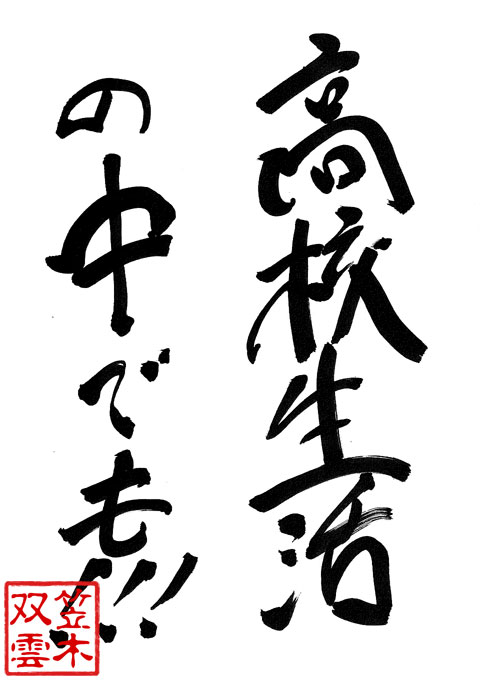 高校生活
の中でも!!!
笠木
双雲